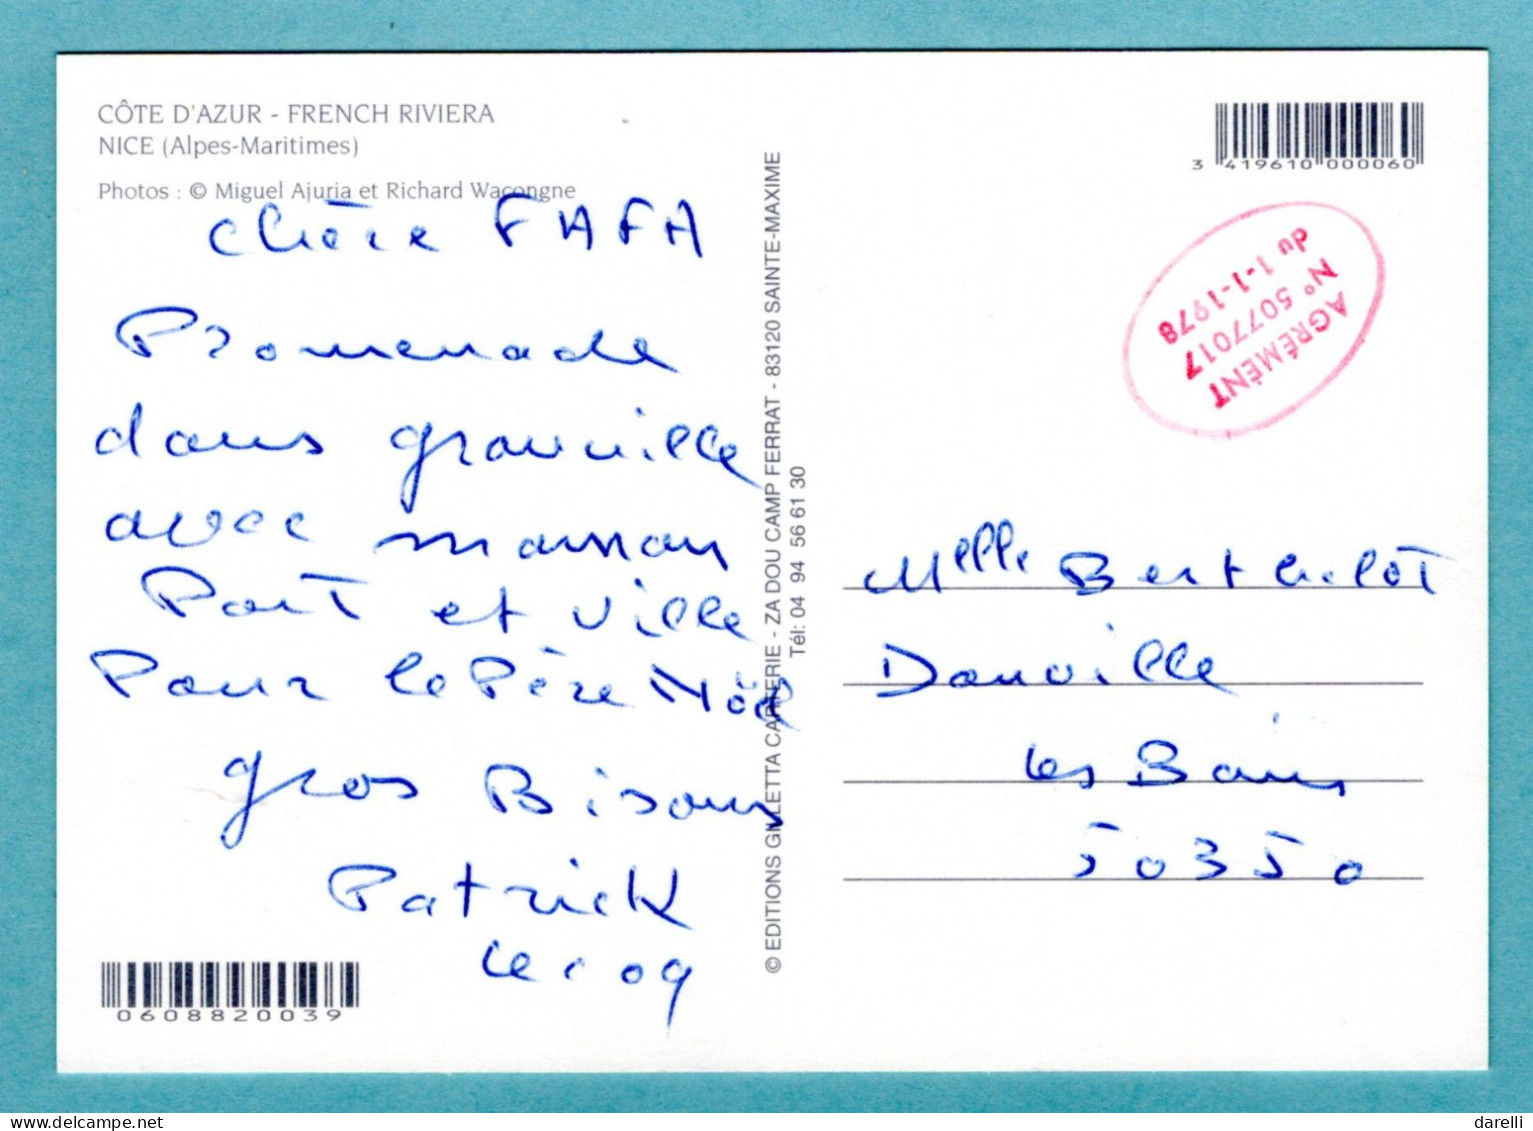 CÔTE D'AZUR - FRENCH RIVIERA
NICE (Alpes-Maritimes)
Photos : © Miguel Ajuria et Richard Wacongne
Chère FAFA
Promenade
dans granville
avec maman
Port et ville
Pour le Père Noël
gros Bisous
Patrick
Lecoq
0608820039
© EDITIONS GILLETTA CARTERIE - ZA DOU CAMP FERRAT - 83120 SAINTE-MAXIME
Tél: 04 94 56 61 30
3 419610 000060
AGRÉMÉNT
N° 5077017
du 1-1-1978
Melle Berthelot
Donville
les Bains
50350
darelli